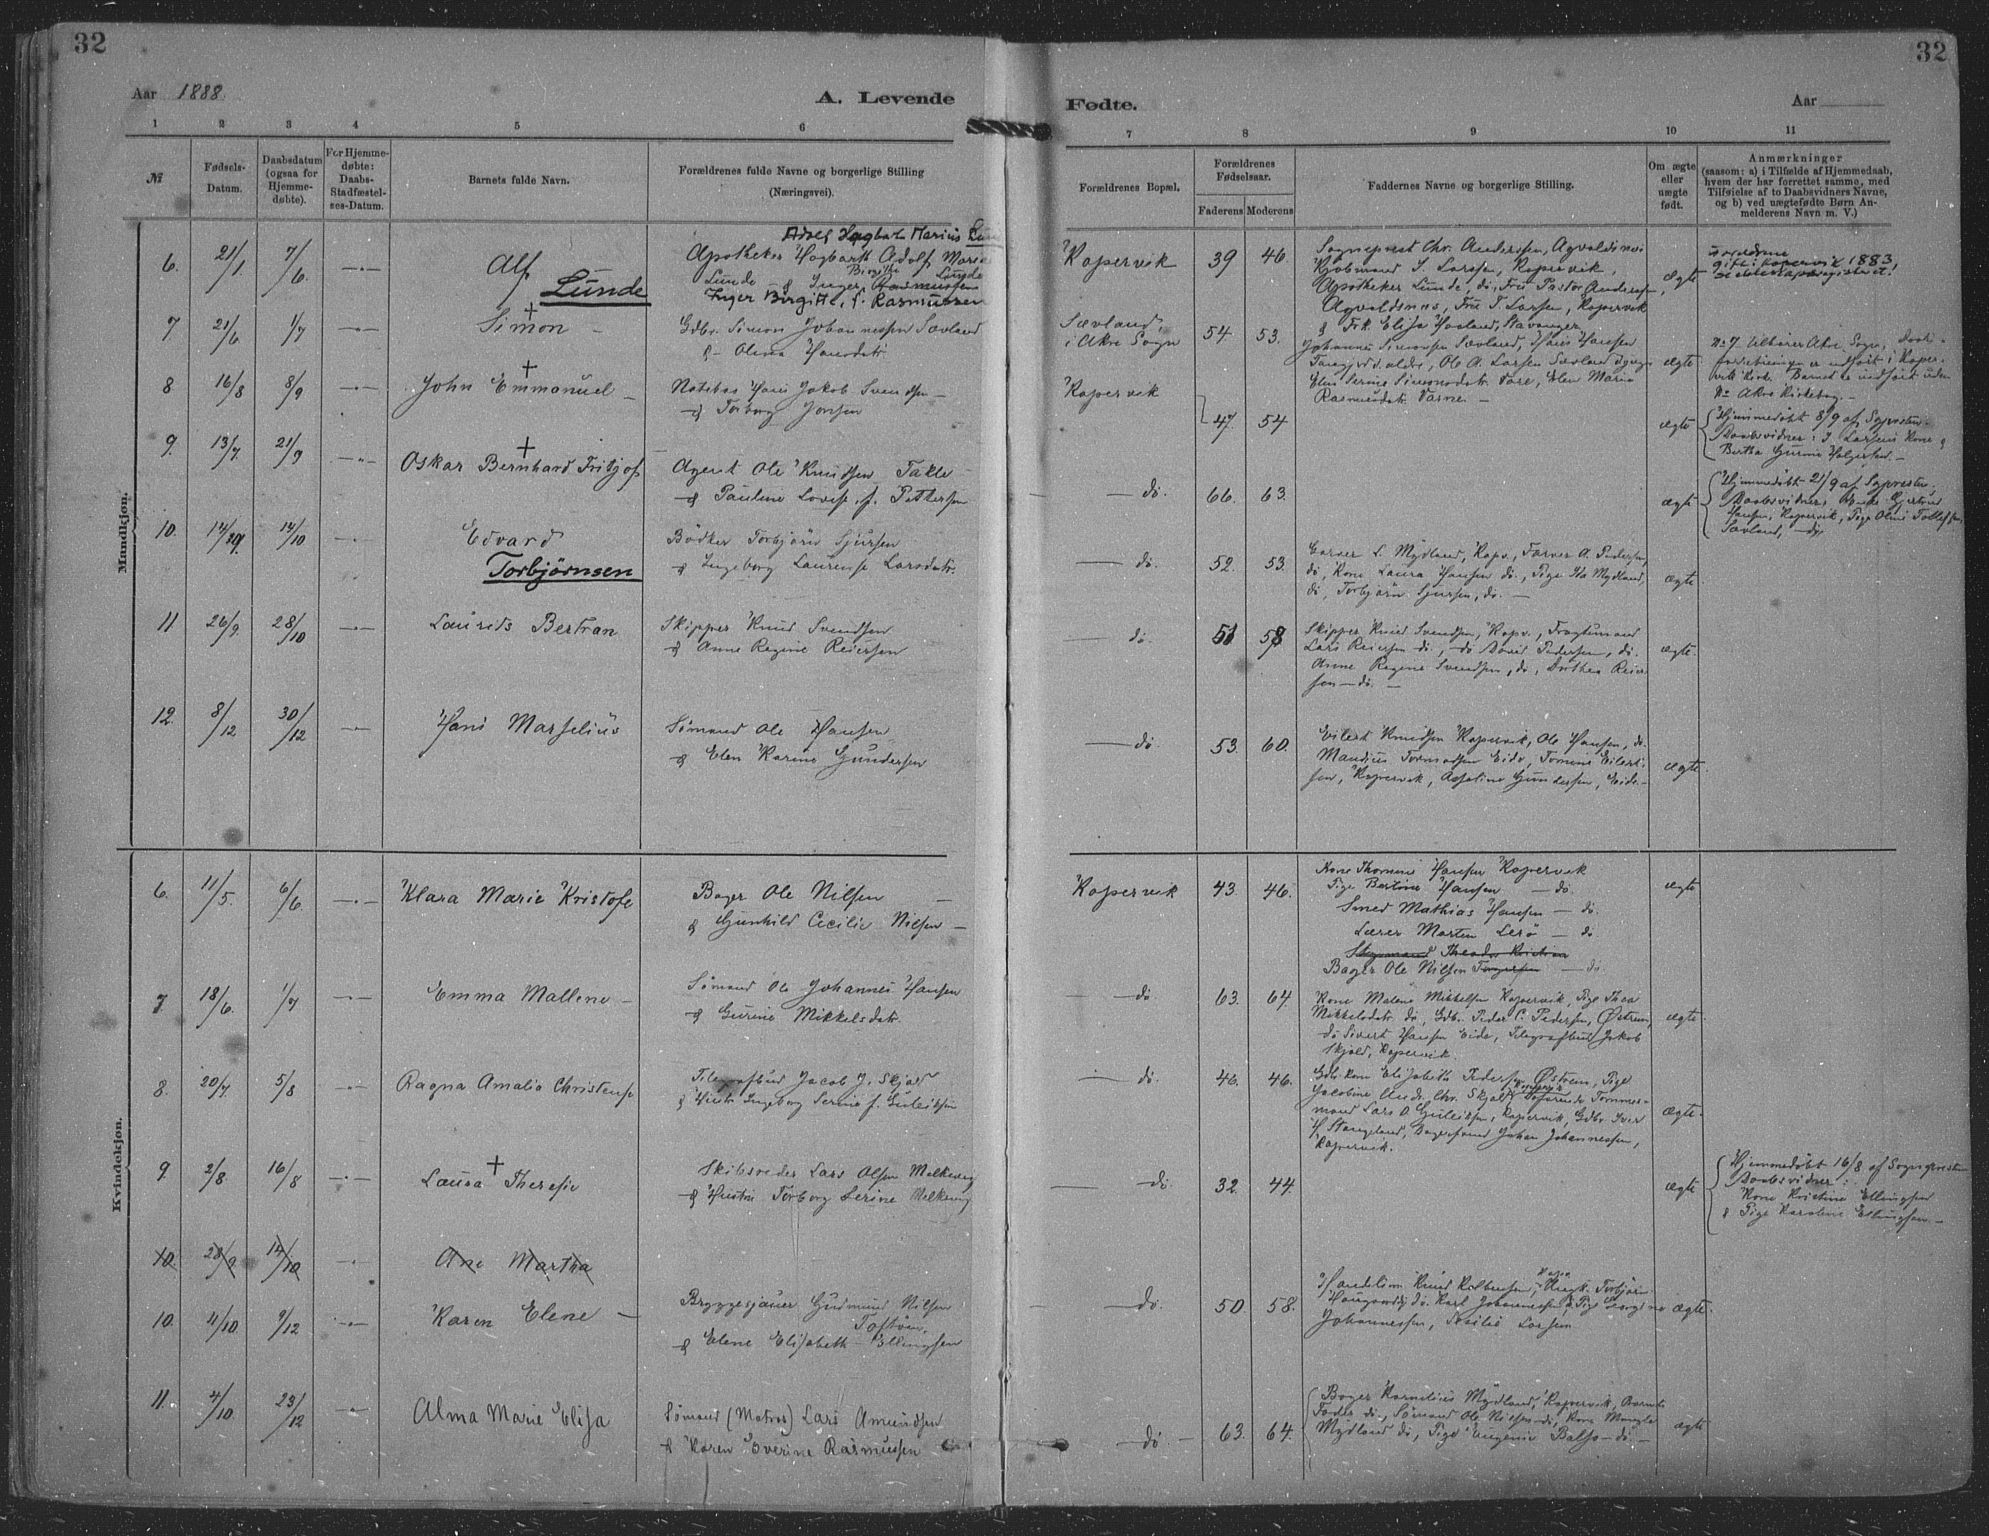 32
32
Aar 1888
A. Levende
Fødte.
Aar
1 2 3 4 5 6 7 8 9 10 11
№
Fødsels-Datum.
Daabsdatum (ogsaa for Hjemme-døbte).
For Hjemme-døbte: Daabs-Stadfæstel-ses-Datum.
Barnets fulde Navn.
Forældrenes fulde Navne og borgerlige Stilling
(Næringsvei).
Forældrenes Bopæl.
Forældrenes Fødselsaar.
Faderens Moderens
Faddernes Navne og borgerlige Stilling.
Om ægte eller uægte født.
Anmærkninger
(saasom: a) i Tilfælde af Hjemmedaab,
hvem der har forrettet samme, med
Tilføielse af to Daabsvidners Navne,
og b) ved uægtefødte Børn An-
melderens Navn m. V.)
Mandkjøn.
6. 21/1 7/6 Alf
Lunde
Adolf Hagbart Marius
Apotheker Hagbarth Adolf
Lunde & Inger Rasmussen
Birgithe Lunde
Inger Birgitte f. Rasmussen
Kopervik 39 46.
Sogneprest Chr. Andersen, Agvaldsnes
Kjøbmand I. Larsen, Kopervik,
Apotheker Lunde, do, Fru Pastor Andersen,
Agvaldsnes, Fru I. Larsen, Kopervik
& Frk. Elisa Havland, Stavanger
ægte
Foreldrene
gift i Kopervik 1883,
7 21/6 1/7 Simon
Gdbr. Simon Johannessen Sævland
& Olena Hansdtr
Sævland, i Akre Sogn 54 53.
Johannes Simonsen Sævland, Hans Hansen
Ole A. Larsen Sævland
Elen Serine Simonsdtr. Elen Marie
Rasmusdtr.
ægte
No 7 tilhører Akre Sogn, Daabs-
forretningen er udført i Koper-
vik Kirke. Barnet er indført uden
No Akre Kirkebog.
8 16/8 8/9 John Emmanuel
Hans Jakob Svendsen
& Torborg Jonsen
Kopervik 47. 54
ægte
Hjemmedøbt 8/9 af Sognpresten
Daabsvidner: I. Larsens Kone &
Bertha Gurine Holgersen.
9. 13/7. 21/9 Oskar Bernhard Fritjof
Agent Ole Knudsen Takle
& Pauline Lovise f. Pettersen
do. 66. 63.
ægte
Hjemmedøbt 21/9 af Sognpresten.
Daabsvidner, Enke Gjertine
Hansen, Kopervik, Pige Oline
Sævland, do
10. 14/10 Edvard
Torbjørnsen
Bødker Torbjørn Sjursen
& Ingeborg Laurense Larsdatr.
do. 52. 53.
Garver L. Mydland, Kopv., Farver A. Pedersen,
do, Kone Laura Hansen do., Pige Ida Mydland,
do, Torbjørn Sjursen, do.
ægte
11 26/9. 28/10 Laurids Bertran
Skipper Knud Svendsen
& Anne Regine Reiersen
do. 51 58
Skipper Knud Svendsen, Kopv., Fragtemand
Lars Reiersen do, do David Pedersen, do.
Anne Regine Svendsen, do, Dorthea Reier-
sen do.
ægte.
12. 8/12 30/12 Hans Marselius
Sømand Ole Hansen
& Elen Karine Gundersen
do 53. 60.
Eilert Knudsen Kopervik, Ole Hansen, do.
Mandius Tormodsen Eide, Tomine Eilert-
sen, Kopervik, Asseline Gundersen, Eide.
ægte
Kvindekjøn.
6. 11/5. 6/6. Klara Marie Kristofe
Bager Ole Nilsen
& Gunhild Cecilie Nilsen
Kopervik 43. 46.
Kone Thomine Hansen Kopervik
Pige Bertine Hansen do.
Smed Mathias Hansen do.
Lærer Morten Lerø do
Bager Ole Nilsen do.
ægte
7 18/6. 1/7 Emma Mallene
Sømand Ole Johannes Hansen
& Gurine Mikkelsdatr.
do 63. 64.
Kone Malene Mikkelsen Kopervik, Pige Thea
Mikkelsdatr. do, Gdbr. Peder C. Pedersen, Østrem,
do Sivert Hansen Eide, Telegrafbud Jakob
Skjold, Kopervik.
ægte.
8. 20/7. 5/8 Ragna Amalia Christense
Telegrafbud Jacob J. Skjold
& Hustru Ingeborg Serine f. Guleiksen
do. 46. 46.
Gdbr. Kone Elisabeth Pedersen Østrem, Pige
Jacobine Andr. Chr. Skjold, Tømmer-
mand Lars O. Guleiksen, Kopervik, Gdbr. Iver
H. Stangeland, Bagersvend Johan Johannessen,
Kopervik.
ægte.
9 2/8 16/8 Laura Theresie
Skibsreder Lars Olsen Melkevig
& Hustru Torborg Serine Melkevig
do. 32. 44.
ægte
Hjemmedøbt 16/8 af Sognepresten
Daabsvidner:
Kone Kristine Ellingsen
& Pige Karoline Ellingsen.
10. 28/9. 14/10 Ane Martha
10. 4/10. 9/12 Karen Elene
Bryggesjauer Gudmund Nilsen
& Elene Elisabeth Ellingsen
do. 50. 58.
Johannessen, Sesilie Larsen
ægte.
11. 4/10. 23/12 Alma Marie Elisa
Sømand (Matros) Lars Amundsen
& Karen Everine Rasmussen
do 63. 64.
Bager Kornelius Mydland, Kopervik,
do, Sømand Ole Nilsen do, Kone
Mydland do, Pige Eugenie do.
ægte